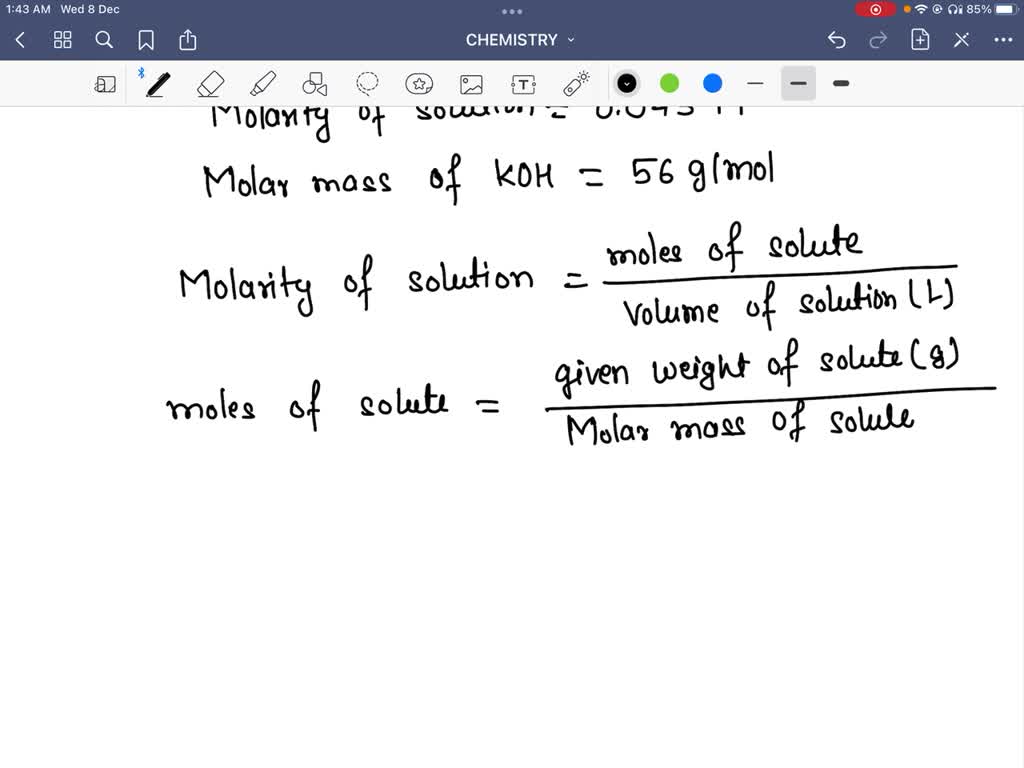 1:43 AM Wed 8 Dec
85%
CHEMISTRY
T
Molarity of solution =
Molar mass of KOH = 56 g/mol
Molarity of solution = moles of solute
volume of solution (L)
moles of solute = given weight of solute (g)
Molar mass of solute